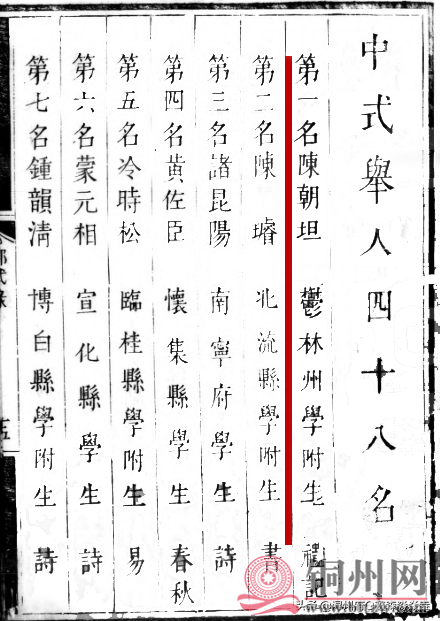 中式舉人四十八名
第一名陳朝坦 鬱林州學附生 禮記
第二名陳璿 北流縣學附生 書
第三名諸昆陽 南寧府學生 詩
第四名黃佐臣 懷集縣學生 春秋
第五名冷時松 臨桂縣學附生 易
第六名蒙元相 宣化縣學生 詩
第七名鍾韻淸 博白縣學附生 詩